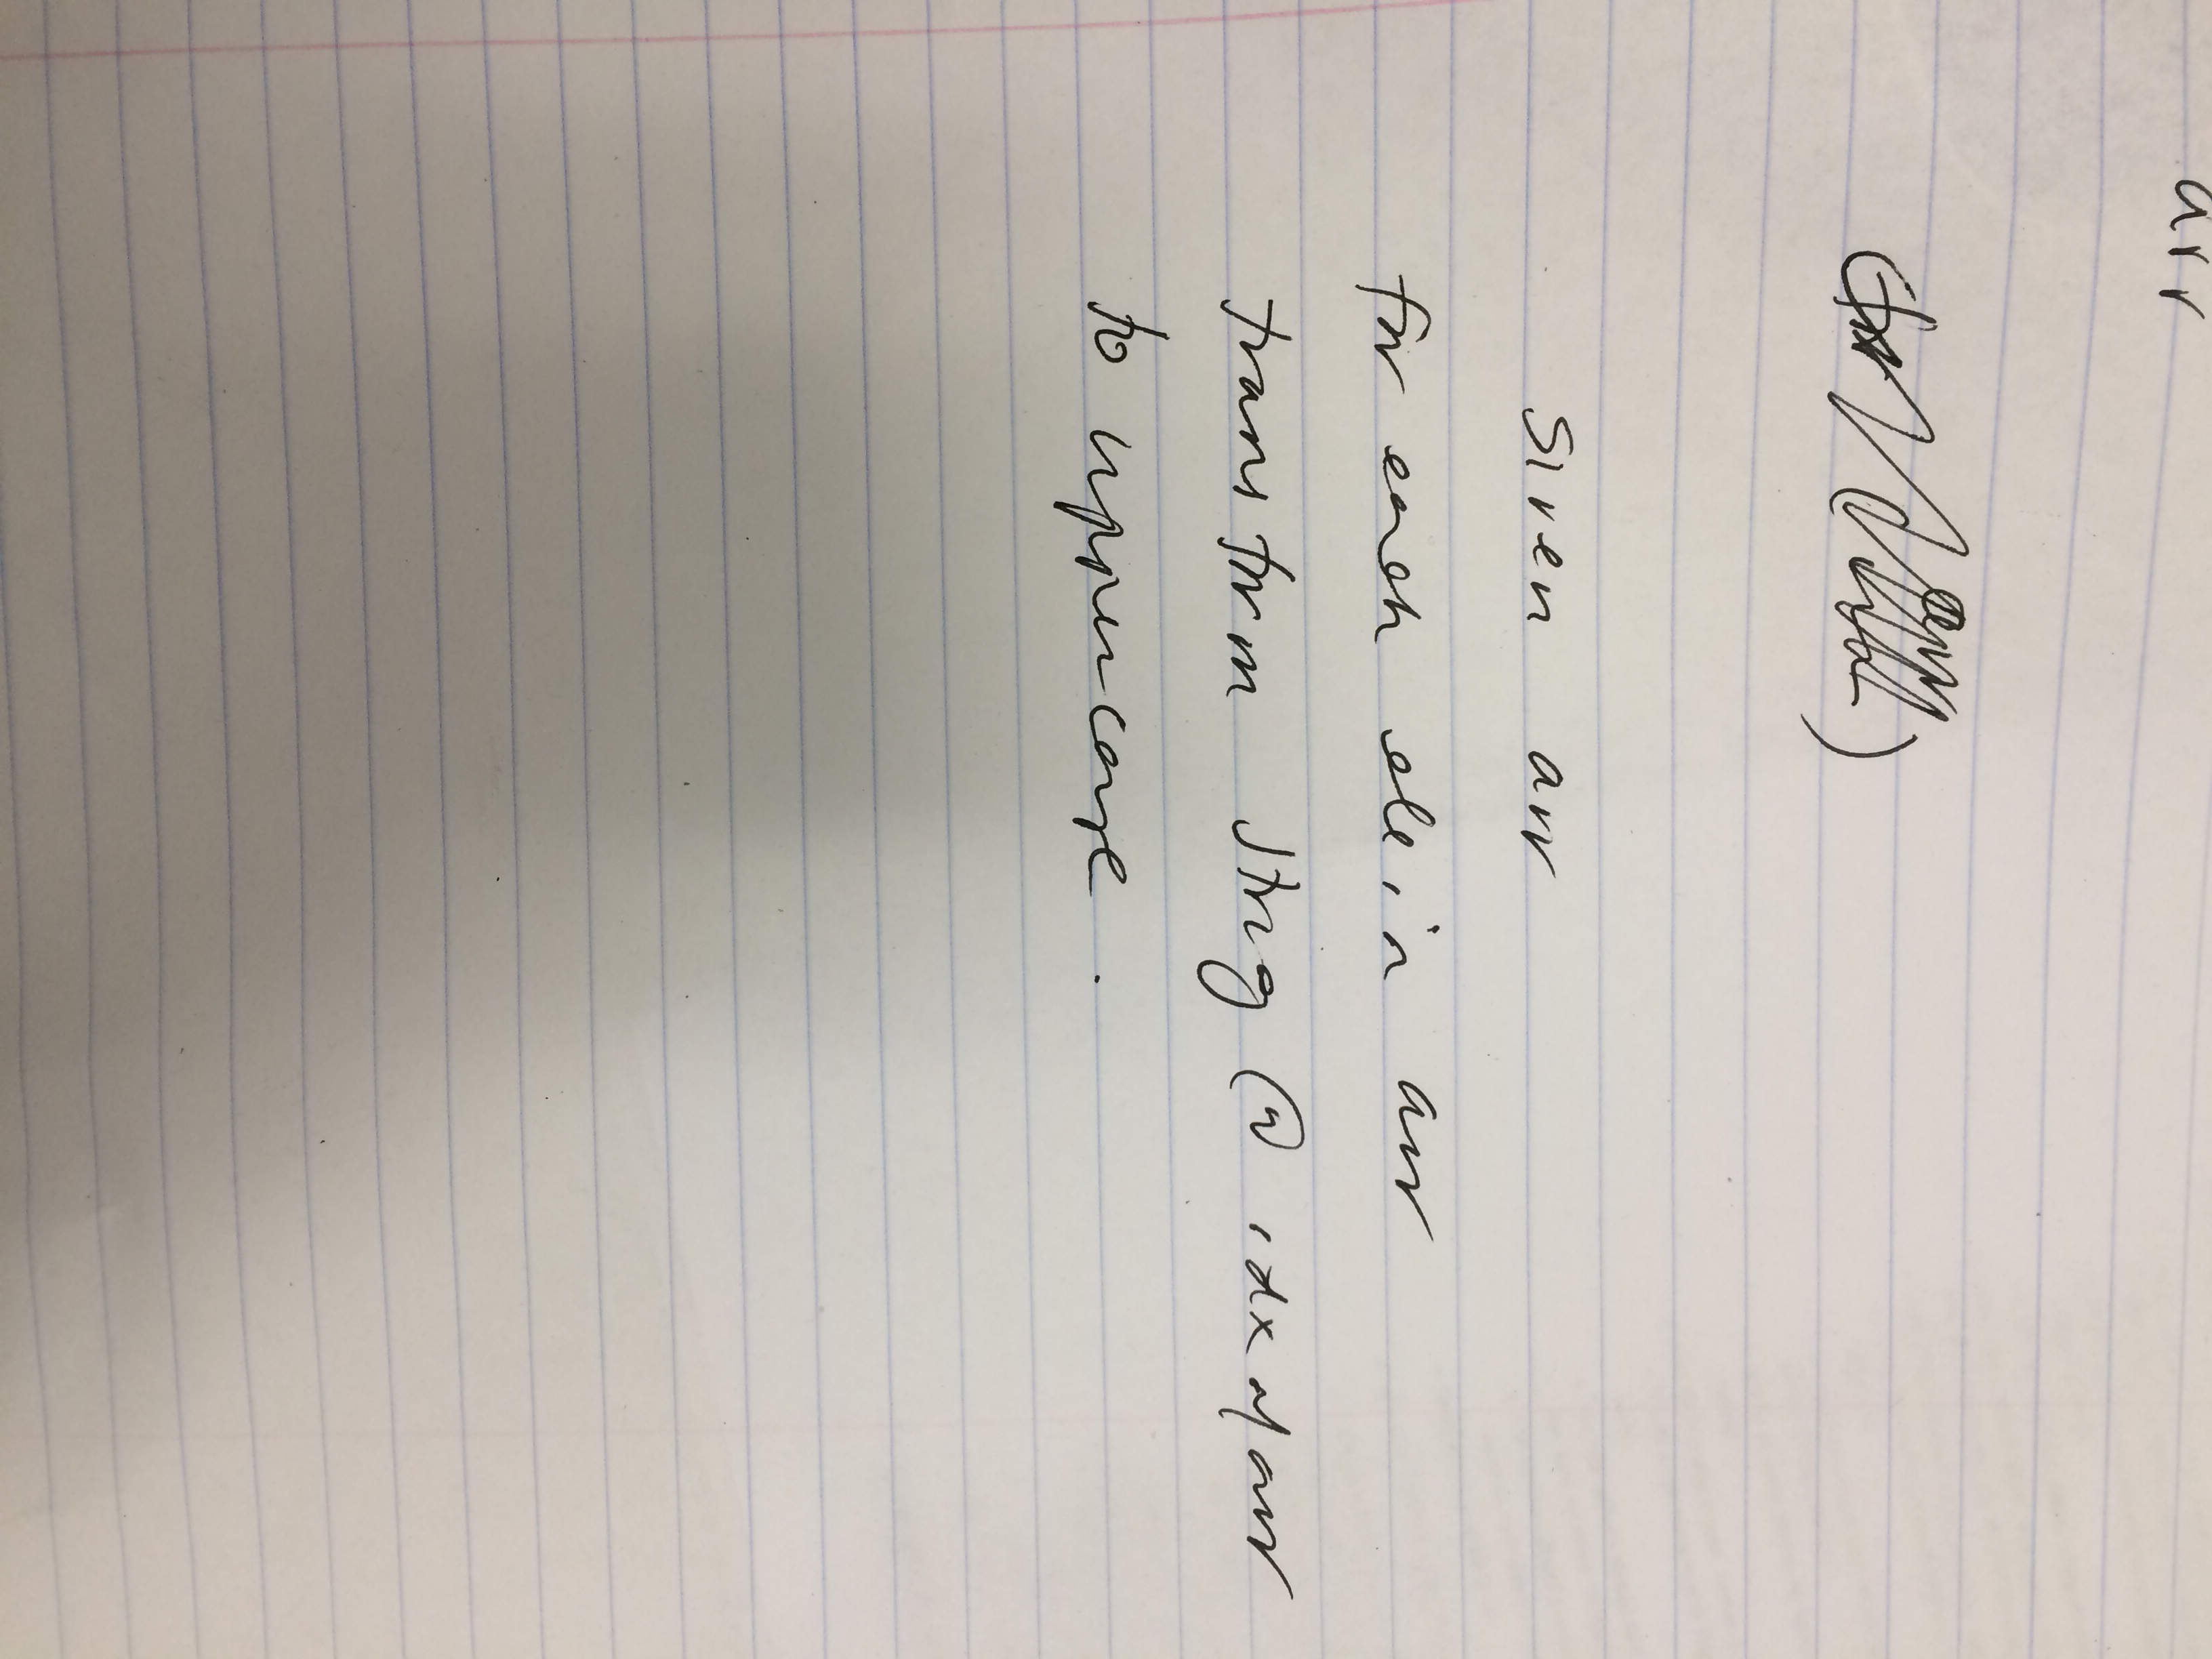 arr
given arr
for each ele in arr
transform string @ idx of arr
to uppercase.